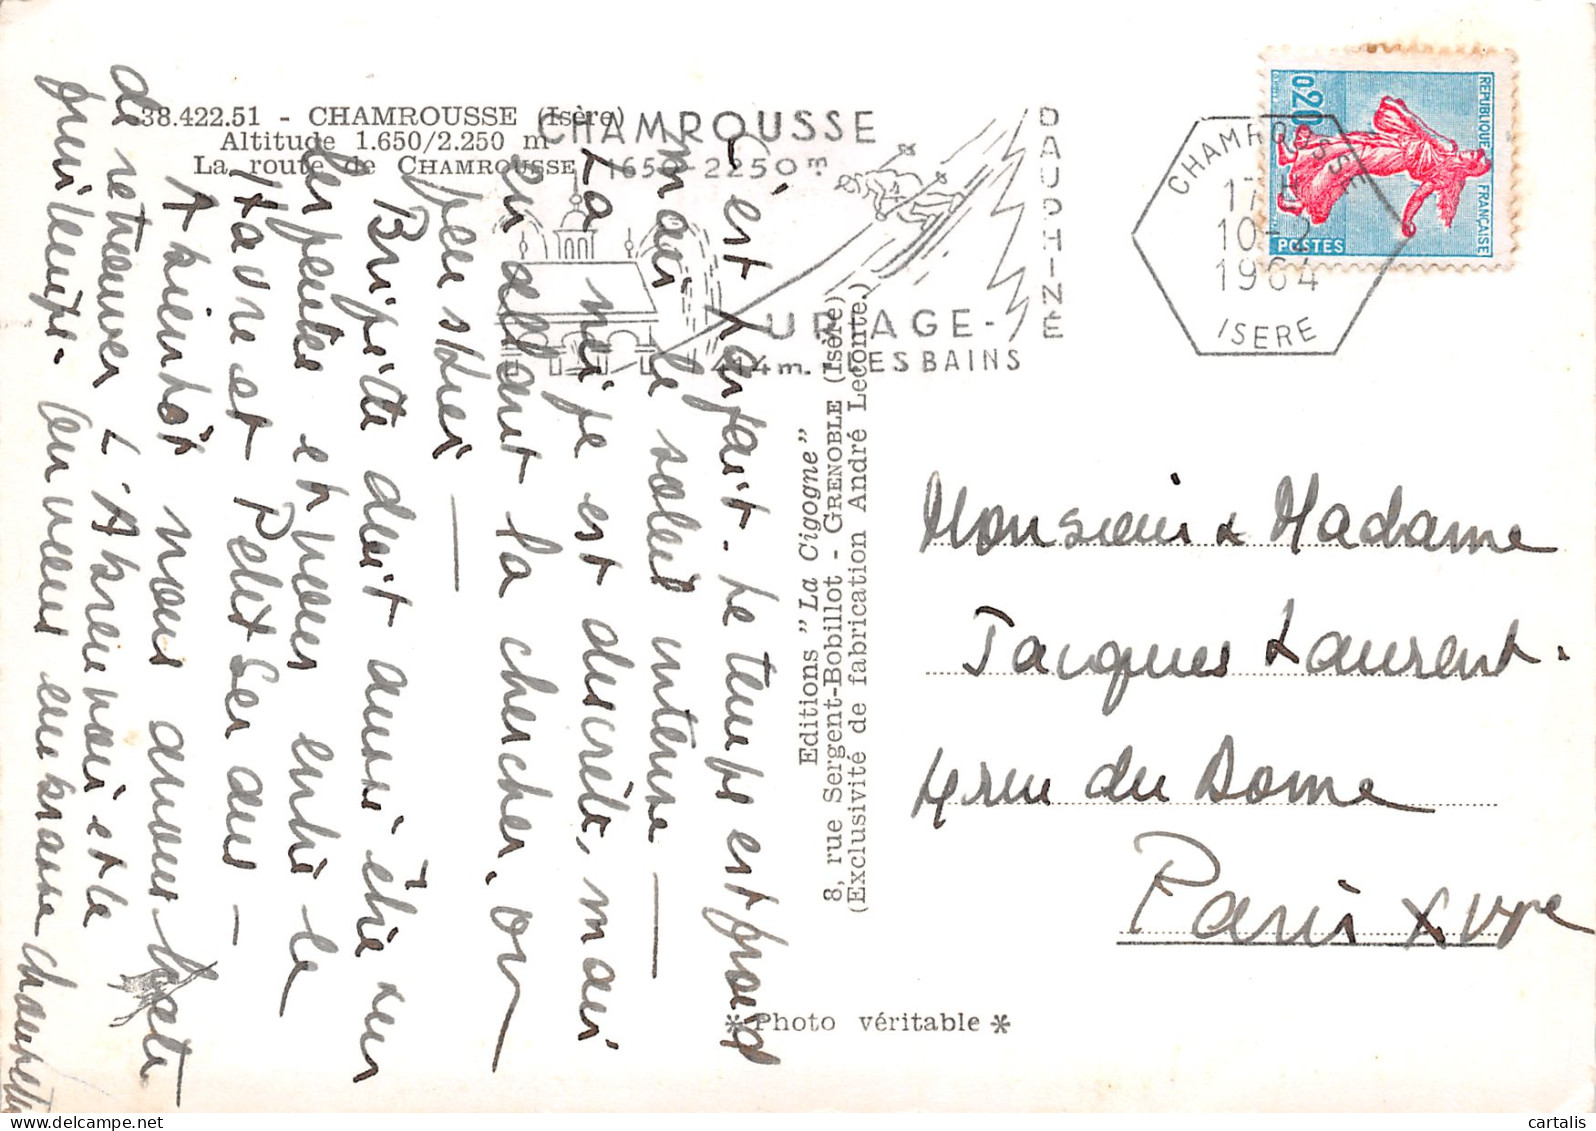 38.422.51 - CHAMROUSSE (Isère)
Altitude 1.650/2.250 m
La route de CHAMROUSSE
CHAMROUSSE
1650-2250m
DAUPHINÉ
URIAGE-
414m. LES BAINS
CHAMROUSSE
17H
10-2
1964
ISERE
REPUBLIQUE FRANÇAISE
0,20
POSTES
C'est parfait. Le temps est froid
mais le soleil intense —
La neige est discrète, mais
en allant la chercher, on
peu skier —
Brigitte doit aussi être sur
les pentes et vous entre le
Havre et
A bientôt nous avons hâte
de retrouver L'Abreuvoir et la
On vous embrasse
Editions "La Cigogne"
8, rue Sergent-Bobillot - GRENOBLE (Isère)
(Exclusivité de fabrication André Leconte.)
Monsieur & Madame
Jacques Laurent.
4 rue du Dome
Paris XVIe
* Photo véritable *
cartalis delcampe.net